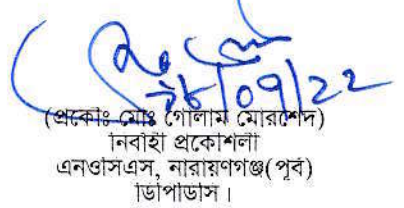 ১৮/০৭/২২
(প্রকৌঃ মোঃ গোলাম মোরশেদ)
নির্বাহী প্রকৌশলী
এনওসিএস, নারায়ণগঞ্জ(পূর্ব)
ডিপিডিসি।